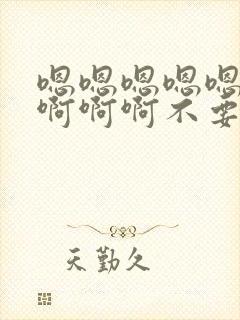 嗯嗯嗯嗯嗯
啊啊啊不要
天勤久